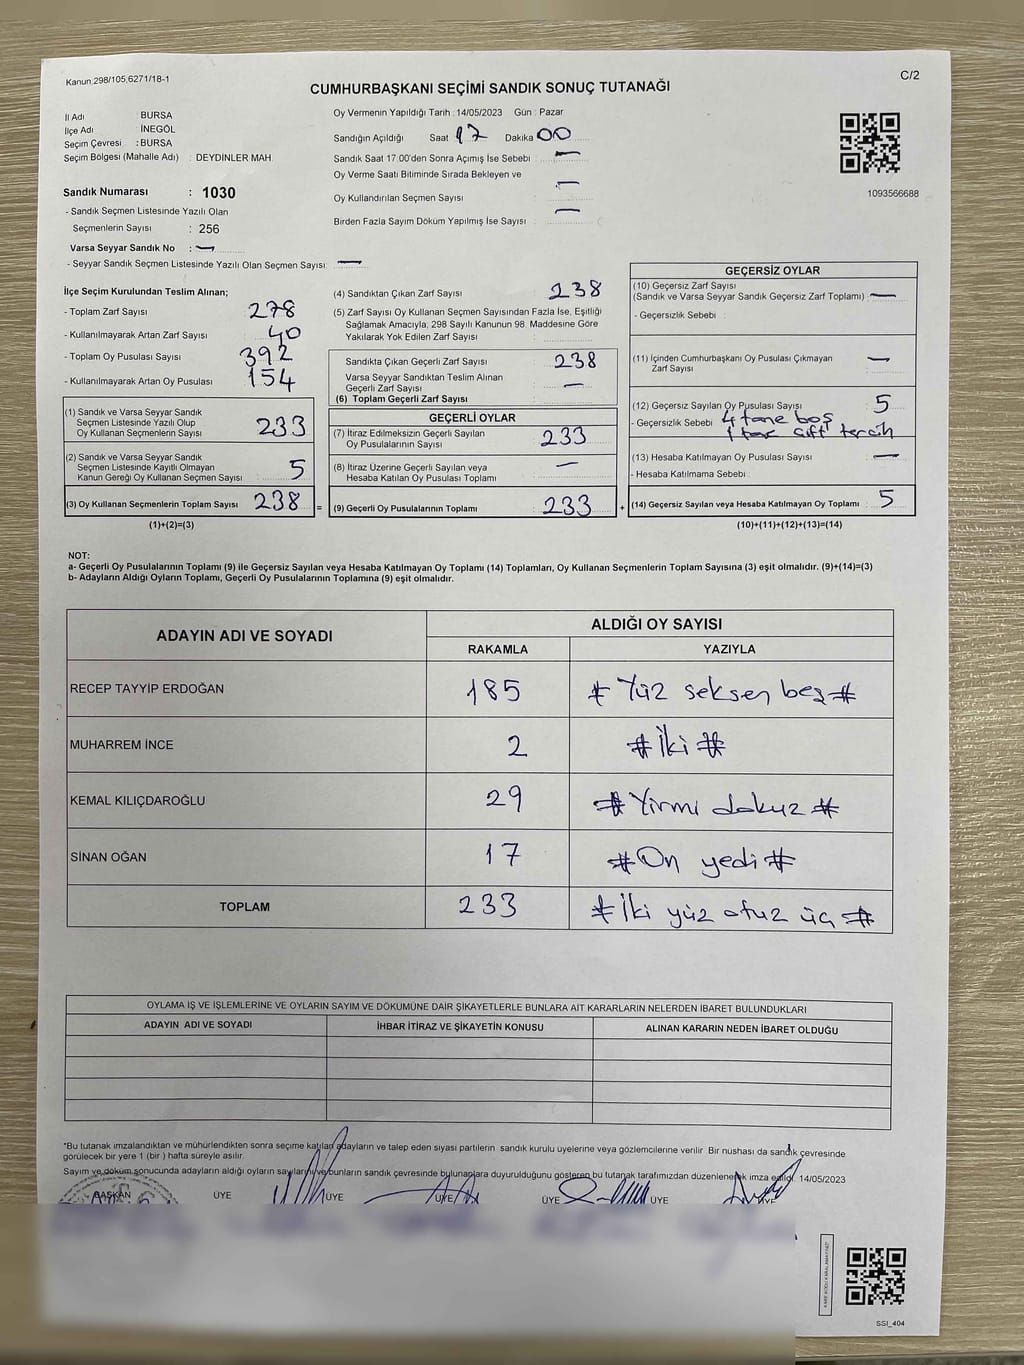 Kanun 298/105,6271/18-1
C/2
CUMHURBAŞKANI SEÇİMİ SANDIK SONUÇ TUTANAĞI
İl Adı : BURSA
İlçe Adı : İNEGÖL
Seçim Çevresi : BURSA
Seçim Bölgesi (Mahalle Adı) : DEYDİNLER MAH.
Sandık Numarası : 1030
- Sandık Seçmen Listesinde Yazılı Olan
Seçmenlerin Sayısı : 256
Varsa Seyyar Sandık No : —
- Seyyar Sandık Seçmen Listesinde Yazılı Olan Seçmen Sayısı: —
Oy Vermenin Yapıldığı Tarih : 14/05/2023 Gün : Pazar
Sandığın Açıldığı Saat 17 Dakika 00
Sandık Saat 17:00'den Sonra Açımış İse Sebebi : —
Oy Verme Saati Bitiminde Sırada Bekleyen ve
Oy Kullandırılan Seçmen Sayısı : —
Birden Fazla Sayım Döküm Yapılmış İse Sayısı : —
1093566688
İlçe Seçim Kurulundan Teslim Alınan;
- Toplam Zarf Sayısı : 278
- Kullanılmayarak Artan Zarf Sayısı : 40
- Toplam Oy Pusulası Sayısı : 392
- Kullanılmayarak Artan Oy Pusulası : 154
(1) Sandık ve Varsa Seyyar Sandık
Seçmen Listesinde Yazılı Olup
Oy Kullanan Seçmenlerin Sayısı : 233
(2) Sandık ve Varsa Seyyar Sandık
Seçmen Listesinde Kayıtlı Olmayan
Kanun Gereği Oy Kullanan Seçmen Sayısı : 5
(3) Oy Kullanan Seçmenlerin Toplam Sayısı : 238 =
(1)+(2)=(3)
(4) Sandıktan Çıkan Zarf Sayısı : 238
(5) Zarf Sayısı Oy Kullanan Seçmen Sayısından Fazla İse, Eşitliği
Sağlamak Amacıyla; 298 Sayılı Kanunun 98. Maddesine Göre
Yakılarak Yok Edilen Zarf Sayısı :
Sandıkta Çıkan Geçerli Zarf Sayısı : 238
Varsa Seyyar Sandıktan Teslim Alınan
Geçerli Zarf Sayısı : —
(6) Toplam Geçerli Zarf Sayısı :
GEÇERLİ OYLAR
(7) İtiraz Edilmeksizin Geçerli Sayılan
Oy Pusulalarının Sayısı : 233
(8) İtiraz Üzerine Geçerli Sayılan veya
Hesaba Katılan Oy Pusulası Toplamı : —
(9) Geçerli Oy Pusulalarının Toplamı : 233 +
GEÇERSİZ OYLAR
(10) Geçersiz Zarf Sayısı
(Sandık ve Varsa Seyyar Sandık Geçersiz Zarf Toplamı) : —
- Geçersizlik Sebebi :
(11) İçinden Cumhurbaşkanı Oy Pusulası Çıkmayan
Zarf Sayısı : —
(12) Geçersiz Sayılan Oy Pusulası Sayısı : 5
- Geçersizlik Sebebi : 4 tane boş
1 tane çift tercih
(13) Hesaba Katılmayan Oy Pusulası Sayısı : —
- Hesaba Katılmama Sebebi :
(14) Geçersiz Sayılan veya Hesaba Katılmayan Oy Toplamı : 5
(10)+(11)+(12)+(13)=(14)
NOT:
a- Geçerli Oy Pusulalarının Toplamı (9) ile Geçersiz Sayılan veya Hesaba Katılmayan Oy Toplamı (14) Toplamları, Oy Kullanan Seçmenlerin Toplam Sayısına (3) eşit olmalıdır. (9)+(14)=(3)
b- Adayların Aldığı Oyların Toplamı, Geçerli Oy Pusulalarının Toplamına (9) eşit olmalıdır.
ADAYIN ADI VE SOYADI ALDIĞI OY SAYISI
RAKAMLA YAZIYLA
RECEP TAYYİP ERDOĞAN 185 # Yüz seksen beş #
MUHARREM İNCE 2 # İki #
KEMAL KILIÇDAROĞLU 29 # Yirmi dokuz #
SİNAN OĞAN 17 # On yedi #
TOPLAM 233 # İki yüz otuz üç #
OYLAMA İŞ VE İŞLEMLERİNE VE OYLARIN SAYIM VE DÖKÜMÜNE DAİR ŞİKAYETLERLE BUNLARA AİT KARARLARIN NELERDEN İBARET BULUNDUKLARI
ADAYIN ADI VE SOYADI İHBAR İTİRAZ VE ŞİKAYETİN KONUSU ALINAN KARARIN NEDEN İBARET OLDUĞU
*Bu tutanak imzalandıktan ve mühürlendikten sonra seçime katılan adayların ve talep eden siyasi partilerin sandık kurulu üyelerine veya gözlemcilerine verilir. Bir nushası da sandık çevresinde
görülecek bir yere 1 (bir) hafta süreyle asılır.
Sayım ve döküm sonucunda adayların aldığı oyların sayıları ve bunların sandık çevresinde bulunanlara duyurulduğunu gösteren bu tutanak tarafımızdan düzenlenerek imza edildi. 14/05/2023
BAŞKAN ÜYE ÜYE ÜYE ÜYE ÜYE ÜYE
SSİ_404